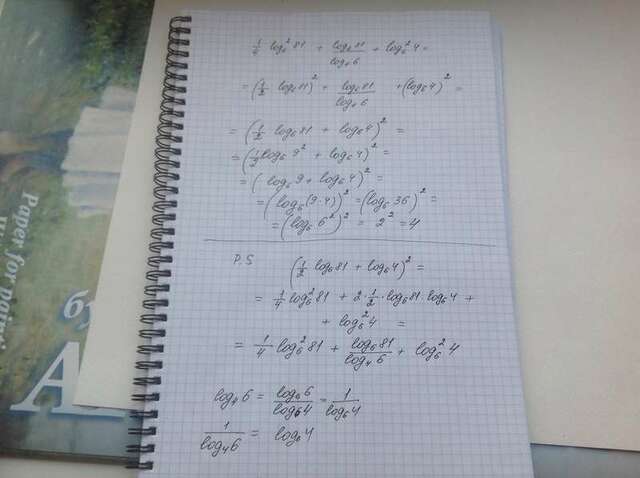 1/4 log₆²81 + log₆81/log₄6 + log₆²4 =
= (1/2 log₆81)² + log₆81/log₄6 + (log₆4)² =
= (1/2 log₆81 + log₆4)² =
= (1/2 log₆9² + log₆4)² =
= (log₆9 + log₆4)² =
= (log₆(9·4))² = (log₆36)² =
= (log₆6²)² = 2² = 4
P.S (1/2 log₆81 + log₆4)² =
= 1/4 log₆²81 + 2·1/2·log₆81·log₆4 +
+ log₆²4 =
= 1/4 log₆²81 + log₆81/log₄6 + log₆²4
log₄6 = log₆6/log₆4 = 1/log₆4
1/log₄6 = log₆4
Paper for